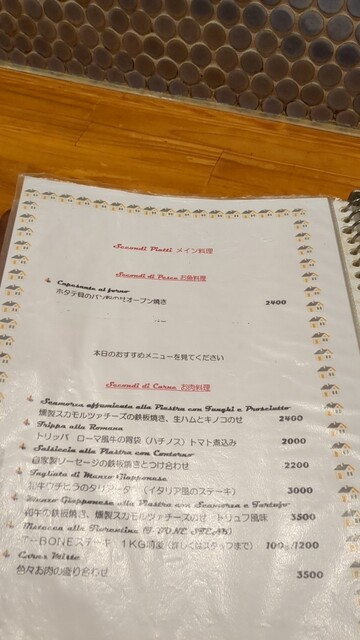 Secondi Piatti メイン料理
Secondi di Pesce お魚料理
Capasanta al forno
ホタテ貝のパン粉のせオーブン焼き 2400
本日のおすすめメニューを見てください
Secondi di Carne お肉料理
Scamorza affumicata alla Piastra con Funghi e Prosciutto
燻製スカモルツァチーズの鉄板焼き、生ハムとキノコのせ 2400
Trippa alla Romana
トリッパ ローマ風牛の胃袋(ハチノス)トマト煮込み 2000
Salsiccia alla Piastra con Contorno
自家製ソーセージの鉄板焼きとつけ合わせ 2200
Tagliata di Manzo Giapponese
和牛ウチヒラのタリアータ (イタリア風のステーキ) 3000
Manzo Giapponese alla Piastra con Scamorza e Tartufo
和牛の鉄板焼き、燻製スカモルツァチーズのせ トリュフ風味 3500
Bistecca alla Fiorentina (T-BONE STEAK)
BONEステーキ 1KG前後(詳しくはスタッフまで) 100g/1200
Carne Misto
色々お肉の盛り合わせ 3500